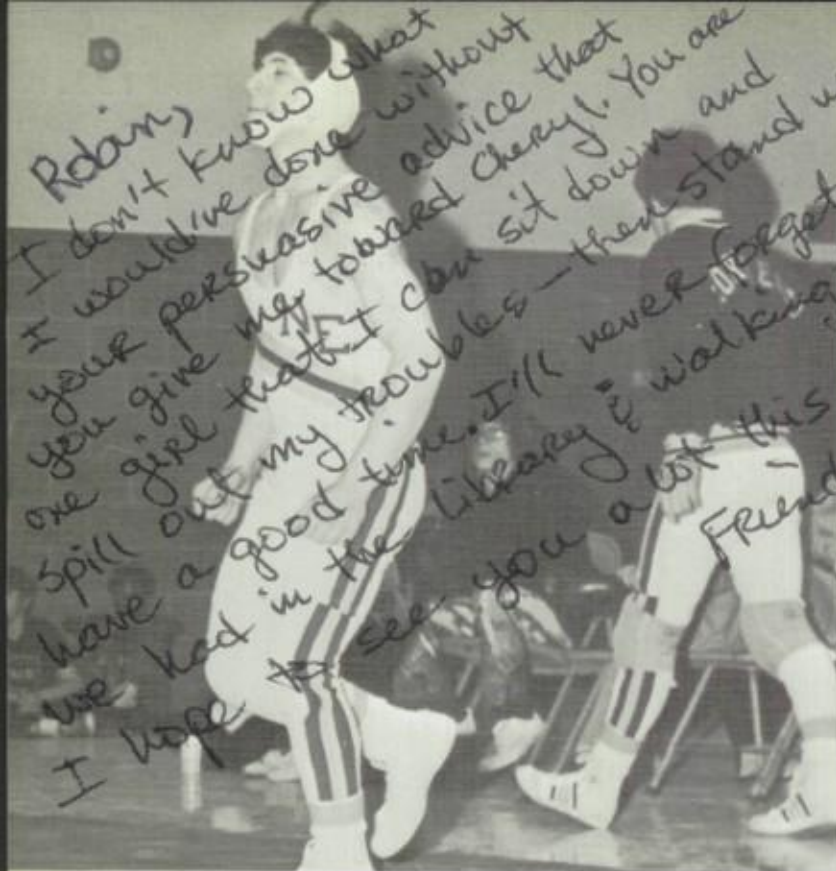 Robin,
I don't know what
I would've done without
your persuasive advice that
you give me toward Cheryl. You are
one girl that I can sit down and
spill out my troubles — then stand
have a good time. I'll never forget
we had in the library & walking
I hope to see you alot this
Friend
NE